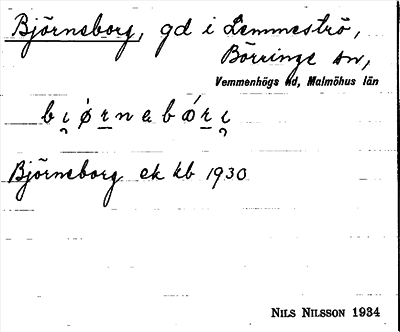 Björneborg, gd i Lemmeströ,
Börringe sn,
Vemmenhögs hd, Malmöhus län
bi̯ǿrnabóri̯
Björneborg ek kb 1930
NILS NILSSON 1934